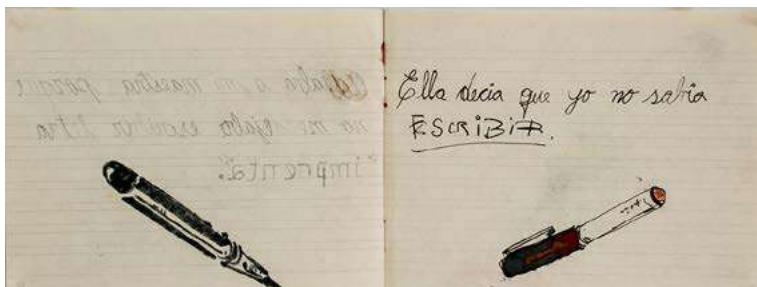 Odiaba a mi maestra porque
no me dejaba escribir letra
"imprenta".
Ella decia que yo no sabia
ESCRIBIR.